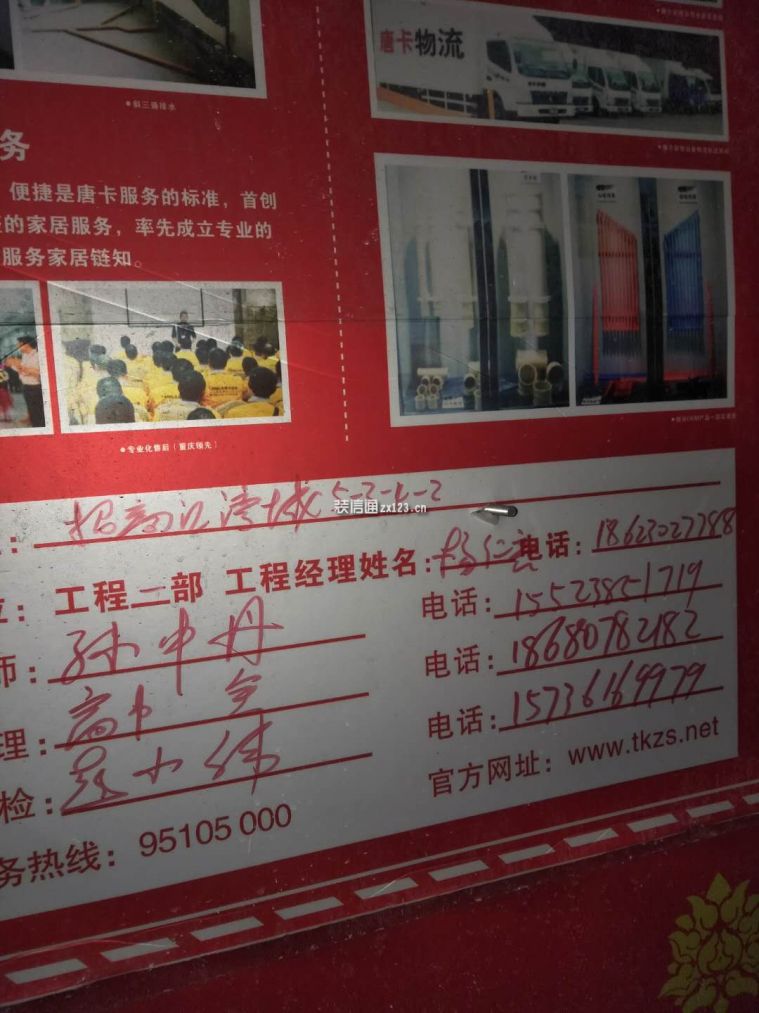 唐卡物流
●斜三通排水
务
便捷是唐卡服务的标准，首创
的家居服务，率先成立专业的
服务家居链知。
●专业化售后（重庆领先）
装信通zx123.cn
5-2-1-2
工程二部 工程经理姓名： 电话：18623027788
师：孙中丹 电话：15523851719
理： 电话：18680782182
检：赵小伟 电话：15736169979
务热线：95105 000 官方网址：www.tkzs.net